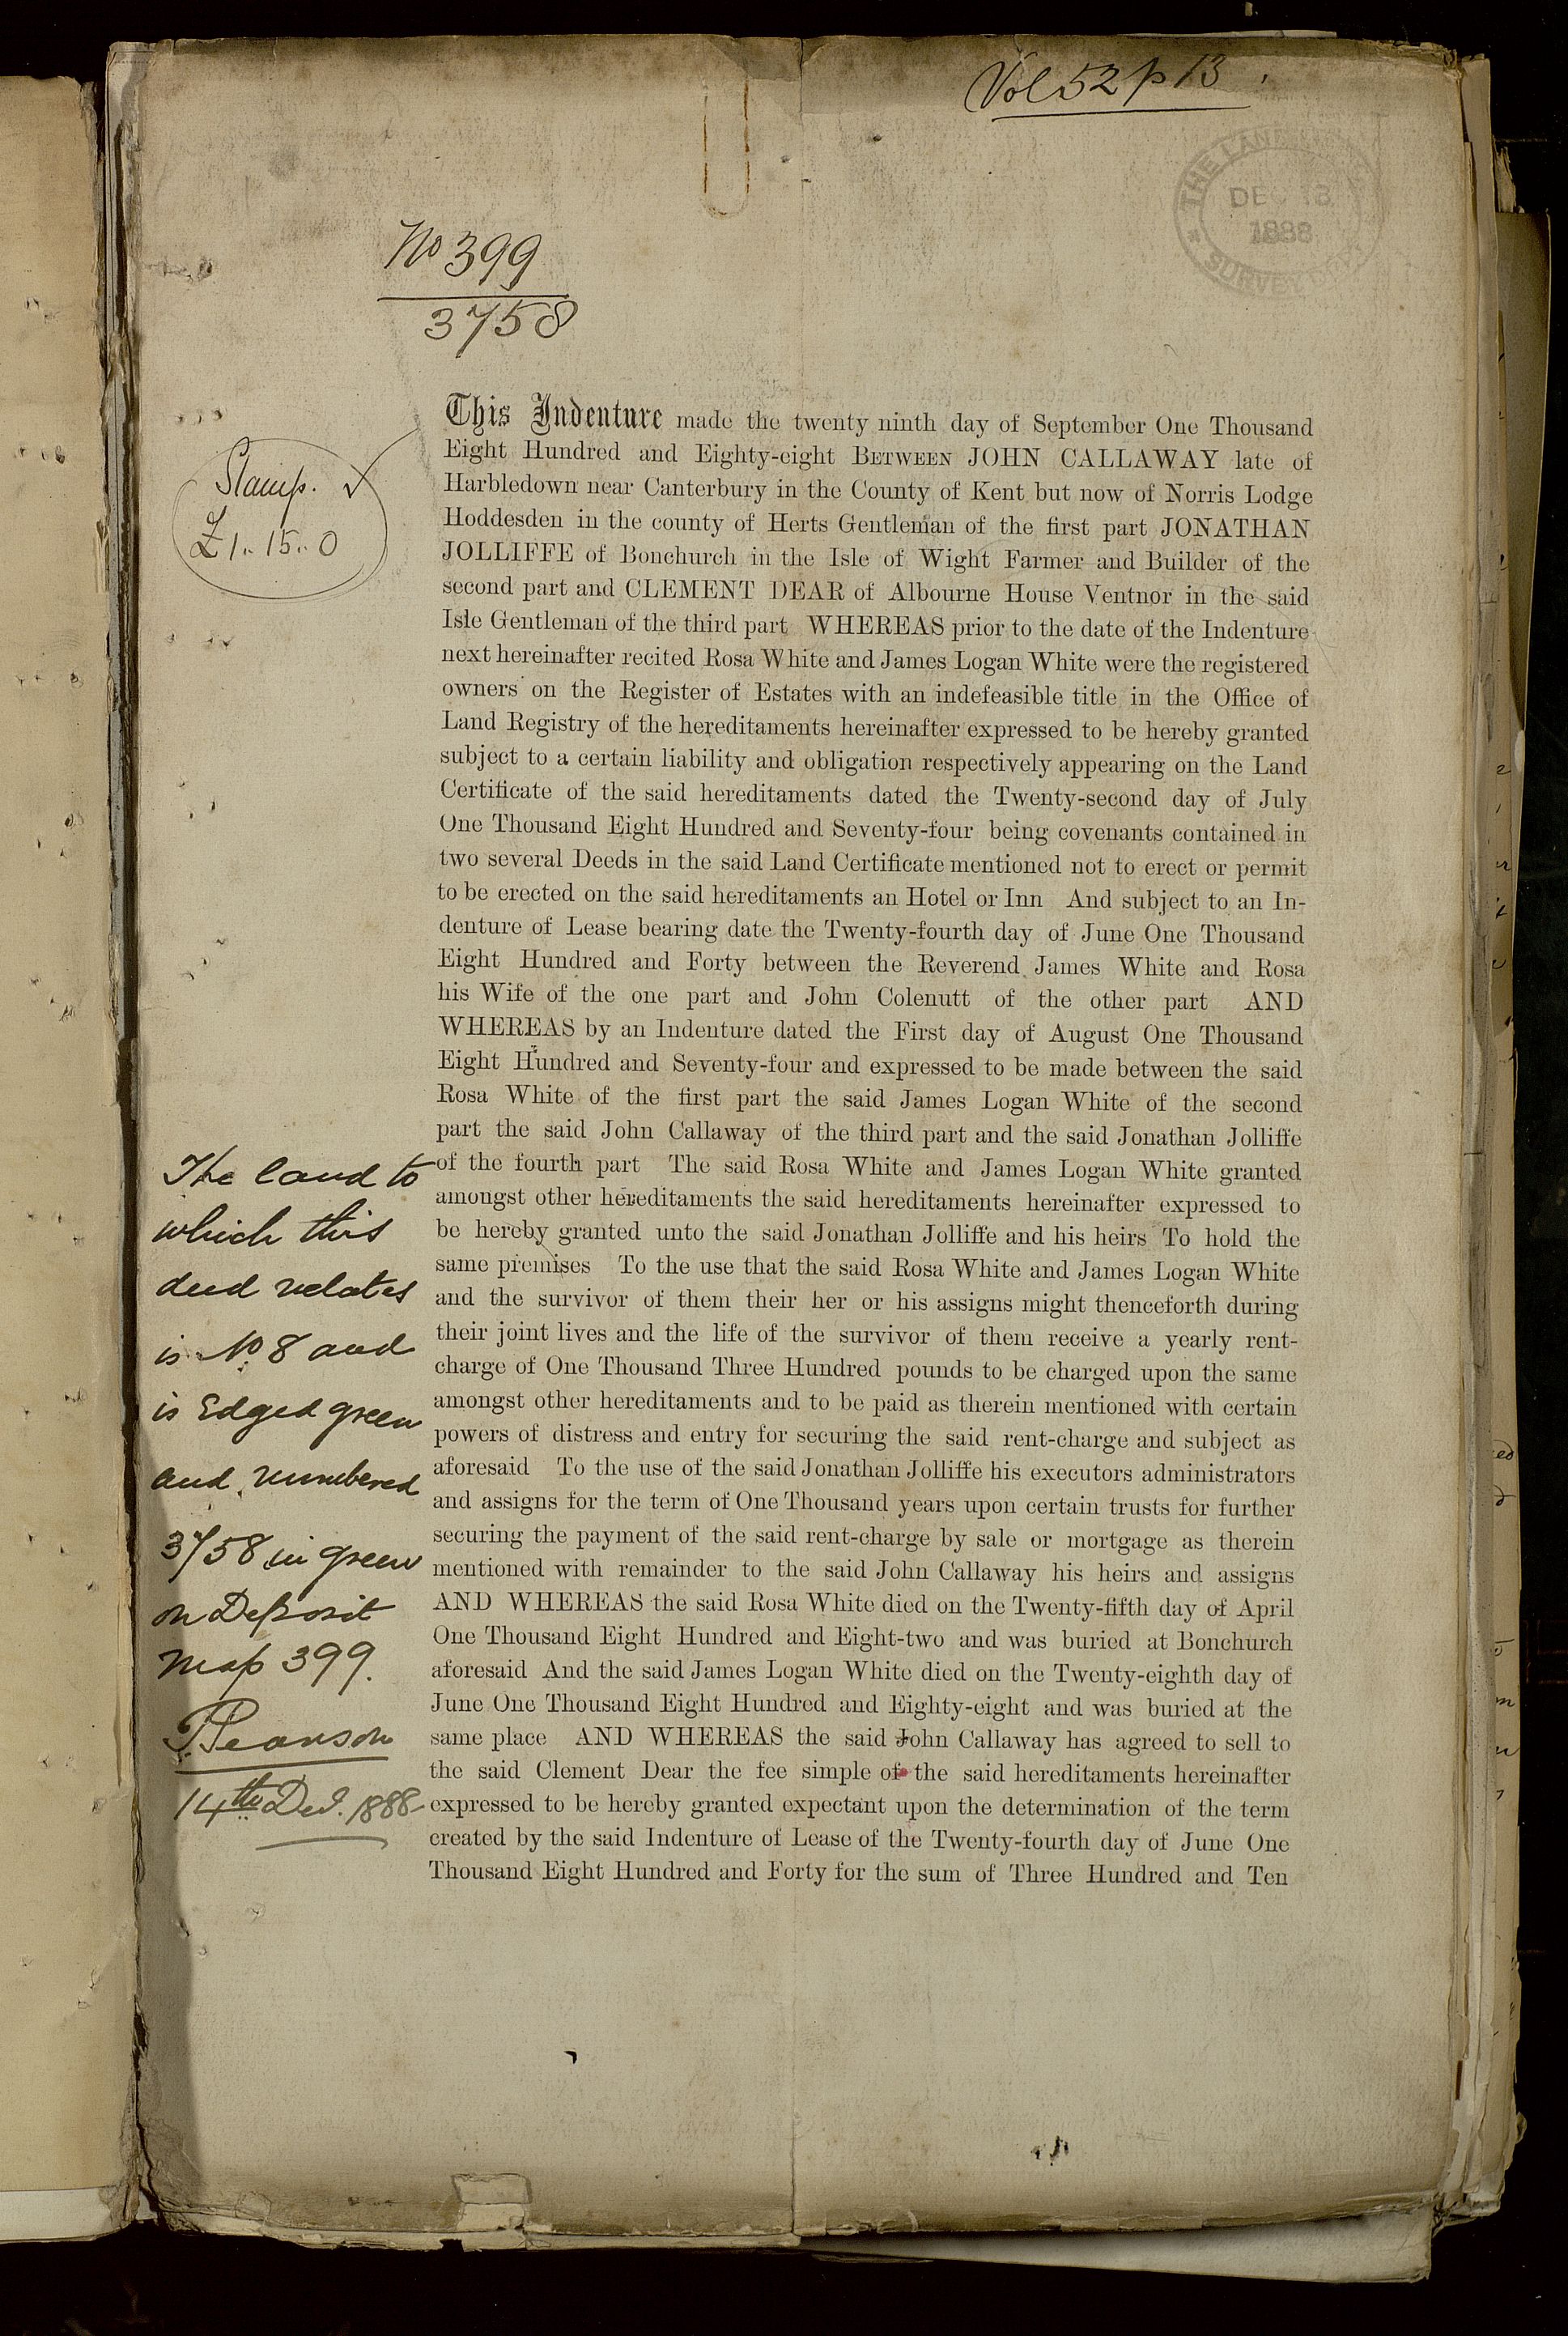 Vol 52 p 13
THE LAND
DEC 13
1888
SURVEY
No 399
3758
Stamp.
£1..15..0
This Indenture made the twenty ninth day of September One Thousand
Eight Hundred and Eighty-eight BETWEEN JOHN CALLAWAY late of
Harbledown near Canterbury in the County of Kent but now of Norris Lodge
Hoddesden in the county of Herts Gentleman of the first part JONATHAN
JOLLIFFE of Bonchurch in the Isle of Wight Farmer and Builder of the
second part and CLEMENT DEAR of Albourne House Ventnor in the said
Isle Gentleman of the third part WHEREAS prior to the date of the Indenture
next hereinafter recited Rosa White and James Logan White were the registered
owners on the Register of Estates with an indefeasible title in the Office of
Land Registry of the hereditaments hereinafter expressed to be hereby granted
subject to a certain liability and obligation respectively appearing on the Land
Certificate of the said hereditaments dated the Twenty-second day of July
One Thousand Eight Hundred and Seventy-four being covenants contained in
two several Deeds in the said Land Certificate mentioned not to erect or permit
to be erected on the said hereditaments an Hotel or Inn And subject to an In-
denture of Lease bearing date the Twenty-fourth day of June One Thousand
Eight Hundred and Forty between the Reverend James White and Rosa
his Wife of the one part and John Colenutt of the other part AND
WHEREAS by an Indenture dated the First day of August One Thousand
Eight Hundred and Seventy-four and expressed to be made between the said
Rosa White of the first part the said James Logan White of the second
part the said John Callaway of the third part and the said Jonathan Jolliffe
of the fourth part The said Rosa White and James Logan White granted
amongst other hereditaments the said hereditaments hereinafter expressed to
be hereby granted unto the said Jonathan Jolliffe and his heirs To hold the
same premises To the use that the said Rosa White and James Logan White
and the survivor of them their her or his assigns might thenceforth during
their joint lives and the life of the survivor of them receive a yearly rent-
charge of One Thousand Three Hundred pounds to be charged upon the same
amongst other hereditaments and to be paid as therein mentioned with certain
powers of distress and entry for securing the said rent-charge and subject as
aforesaid To the use of the said Jonathan Jolliffe his executors administrators
and assigns for the term of One Thousand years upon certain trusts for further
securing the payment of the said rent-charge by sale or mortgage as therein
mentioned with remainder to the said John Callaway his heirs and assigns
AND WHEREAS the said Rosa White died on the Twenty-fifth day of April
One Thousand Eight Hundred and Eight-two and was buried at Bonchurch
aforesaid And the said James Logan White died on the Twenty-eighth day of
June One Thousand Eight Hundred and Eighty-eight and was buried at the
same place AND WHEREAS the said John Callaway has agreed to sell to
the said Clement Dear the fee simple of the said hereditaments hereinafter
expressed to be hereby granted expectant upon the determination of the term
created by the said Indenture of Lease of the Twenty-fourth day of June One
Thousand Eight Hundred and Forty for the sum of Three Hundred and Ten
The land to
which this
deed relates
is No 8 and
is Edged green
and numbered
3758 in green
on Deposit
map 399.
Pearson
14th Dec. 1888